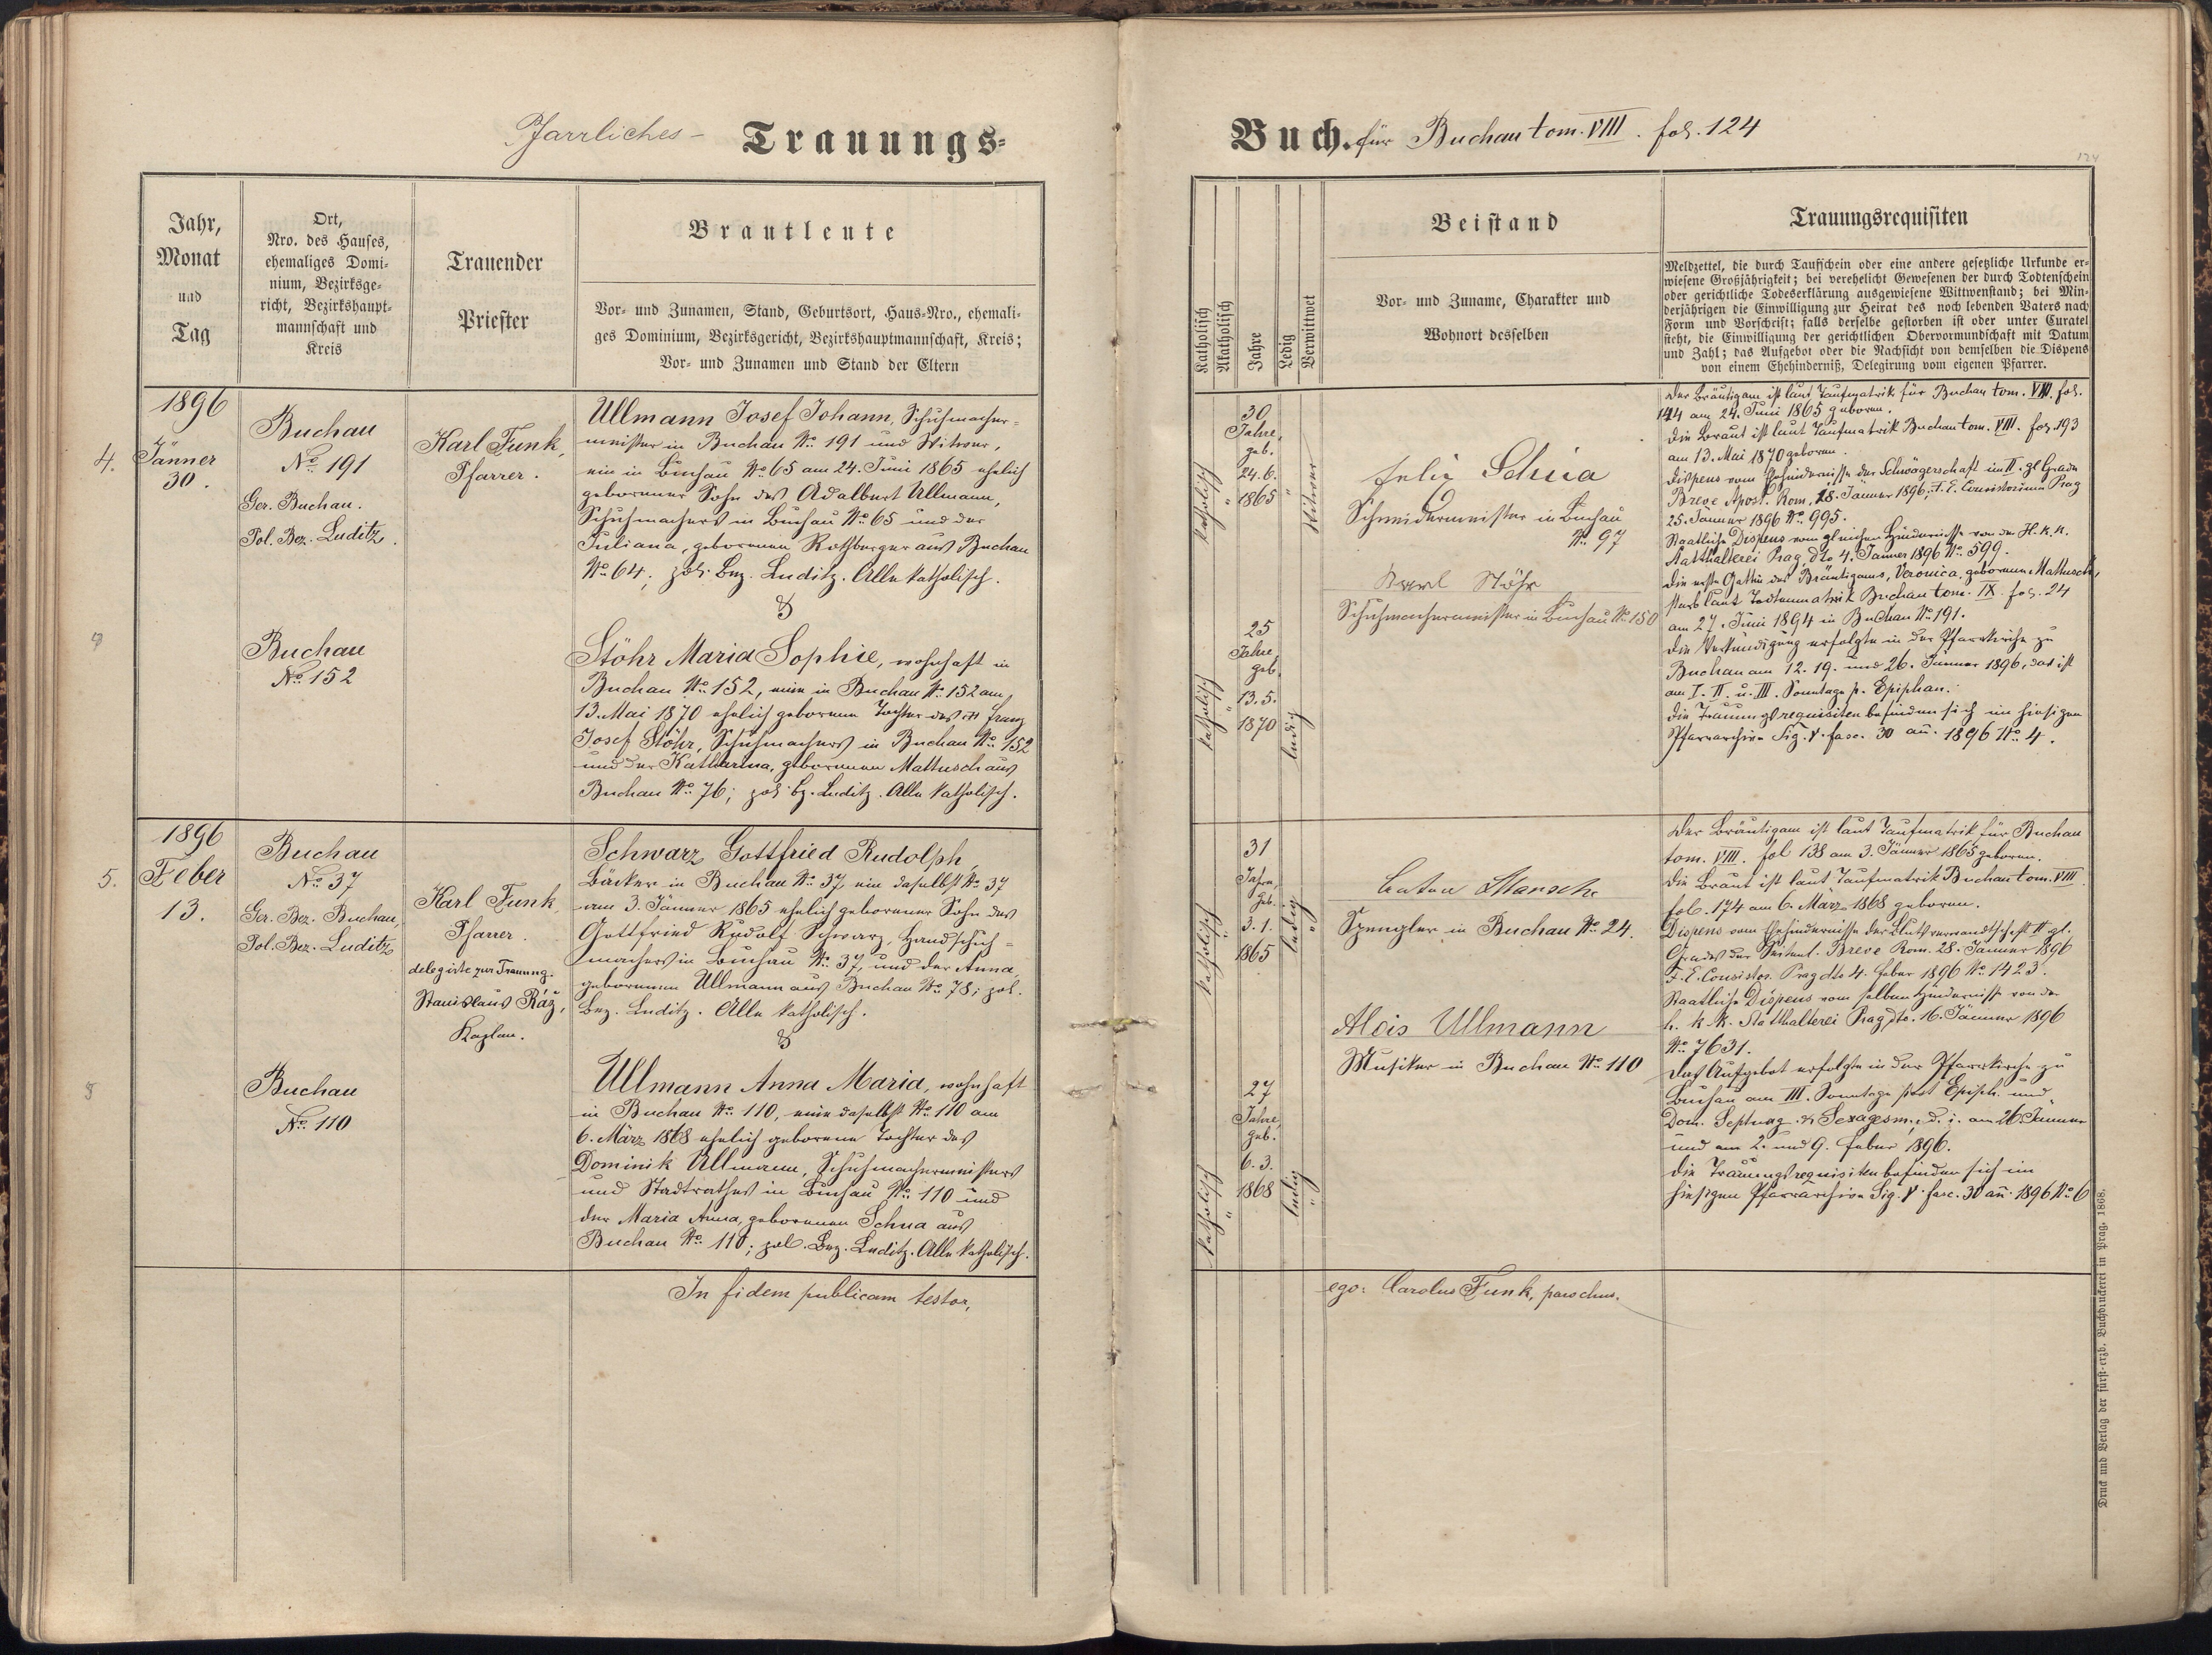 Pfarrliches - Trauungs-
Jahr,
Monat
und
Tag
Ort,
Nro. des Hauses,
ehemaliges Domi-
nium, Bezirksge-
richt, Bezirkshaupt-
mannschaft und
Kreis
Trauender
Priester
Brautleute
Vor- und Zunamen, Stand, Geburtsort, Haus-Nro., ehemali-
ges Dominium, Bezirksgericht, Bezirkshauptmannschaft, Kreis;
Vor- und Zunamen und Stand der Eltern
4.
1896
Jänner
30.
Buchau
No. 191
Ger. Buchau.
Pol. Bez. Luditz.
Karl Funk,
Pfarrer.
Ullmann Josef Johann, Schuhmacher-
meister in Buchau No. 191 und Witwer,
ein in Buchau No. 65 am 24. Juni 1865 ehelich
geborener Sohn des Adalbert Ullmann,
Schuhmachers in Buchau No. 65 und der
Juliana, geborenen Rothberger aus Buchau
No. 64; pol. Bez. Luditz. Alle katholisch.
&
Buchau
No. 152
Stöhr Maria Sophie, wohnhaft in
Buchau No. 152, eine in Buchau No. 152 am
13. Mai 1870 ehelich geborene Tochter des Franz
Josef Stöhr, Schuhmachers in Buchau No. 152
und der Katharina, geborenen Mattusch aus
Buchau No. 76; pol. Bz. Luditz. Alle katholisch.
5.
1896
Feber
13.
Buchau
No. 37
Ger. Bez. Buchau,
Pol. Bez. Luditz
Karl Funk,
Pfarrer.
delegirte zur Trauung.
Stanislaus Ráž,
Kaplan.
Schwarz Gottfried Rudolph,
Bäcker in Buchau No. 37, ein daselbst No. 37
am 3. Jänner 1865 ehelich geborener Sohn des
Gottfried Rudolf Schwarz, Handschuh-
machers in Buchau No. 37, und der Anna,
geborenen Ullmann aus Buchau No. 78; pol.
Bez. Luditz. Alle katholisch.
&
Buchau
No. 110
Ullmann Anna Maria, wohnhaft
in Buchau No. 110, eine daselbst No. 110 am
6. März 1868 ehelich geborene Tochter des
Dominik Ullmann, Schuhmachermeisters
und Stadtrathes in Buchau No. 110 und
der Maria Anna, geborenen Schua aus
Buchau No. 110; pol. Bez. Luditz. Alle katholisch.
In fidem publicam testor,
Buch. für Buchau tom. VIII. fol. 124
124
Katholisch
Akatholisch
Jahre
Ledig
Verwittwet
Beistand
Vor- und Zuname, Charakter und
Wohnort desselben
Trauungsrequisiten
Meldzettel, die durch Taufschein oder eine andere gesetzliche Urkunde er-
wiesene Großjährigkeit; bei verehelicht Gewesenen der durch Todtenschein
oder gerichtliche Todeserklärung ausgewiesene Wittwenstand; bei Min-
derjährigen die Einwilligung zur Heirat des noch lebenden Vaters nach
Form und Vorschrift; falls derselbe gestorben ist oder unter Curatel
steht, die Einwilligung der gerichtlichen Obervormundschaft mit Datum
und Zahl; das Aufgebot oder die Nachsicht von demselben die Dispens
von einem Ehehinderniß, Delegirung vom eigenen Pfarrer.
katholisch
"
30
Jahre,
geb.
24. 6.
1865
"
Witwer
Felix Schua
Schneidermeister in Buchau
No. 97
Karl Stöhr
Schuhmachermeister in Buchau No. 150
katholisch
"
25
Jahre,
geb.
13. 5.
1870
ledig
Der Bräutigam ist laut Taufmatrik für Buchau tom. VIII. fol.
144 am 24. Juni 1865 geboren.
Die Braut ist laut Taufmatrik Buchau tom. VIII. fol. 193
am 13. Mai 1870 geboren.
Dispens vom Ehehindernisse der Schwägerschaft im II. gl. Grade
Breve Apost. Rom. 18. Jänner 1896; F. E. Consistorium Prag
25. Jänner 1896 No. 995.
Staatliche Dispens vom gleichen Hindernisse von der H. k. k.
Statthalterei Prag, dto 4. Jänner 1896 No. 599.
Die erste Gattin des Bräutigams, Veronica, geborene Mattusch,
starb laut Todtenmatrik Buchau tom. IX. fol. 24
am 27. Juni 1894 in Buchau No. 191.
Die Verkündigung erfolgte in der Pfarrkirche zu
Buchau am 12. 19. und 26. Jänner 1896, das ist
am I. II. u. III. Sonntage p. Epiphan.
Die Trauungsrequisiten befinden sich im hiesigen
Pfarrarchive Sig. V. fasc. 30 an. 1896 No. 4.
katholisch
31
Jahre,
geb.
3. 1.
1865
ledig
"
Spengler in Buchau No. 24.
Alois Ullmann
Musiker in Buchau No. 110
katholisch
"
27
Jahre,
geb.
6. 3.
1868
ledig
"
Der Bräutigam ist laut Taufmatrik für Buchau
tom. VIII. fol 138 am 3. Jänner 1865 geboren.
Die Braut ist laut Taufmatrik Buchau tom. VIII
fol. 174 am 6. März 1868 geboren.
Dispens vom Ehehindernisse der Blutsverwandtschaft II gl.
Grades der Seitenl. Breve Rom. 28. Jänner 1896
F. E. Consistor. Prag dto 4. Feber 1896 No. 1423.
Staatliche Dispens vom selben Hindernisse von der
h. k. k. Statthalterei Prag dto. 16. Jänner 1896
No. 7631.
Das Aufgebot erfolgte in der Pfarrkirche zu
Buchau am III. Sonntage post Epiph. und
Dom. Septuag. & Sexagesm., d. i. am 26 Jänner
und am 2. und 9. Feber 1896.
Die Trauungsrequisiten befinden sich im
hiesigen Pfarrarchive Sig. V. fasc. 30 an. 1896 No 6
ego: Carolus Funk, parochus.
Druck und Verlag der fürst-erzb. Buchdruckerei in Prag. 1868.